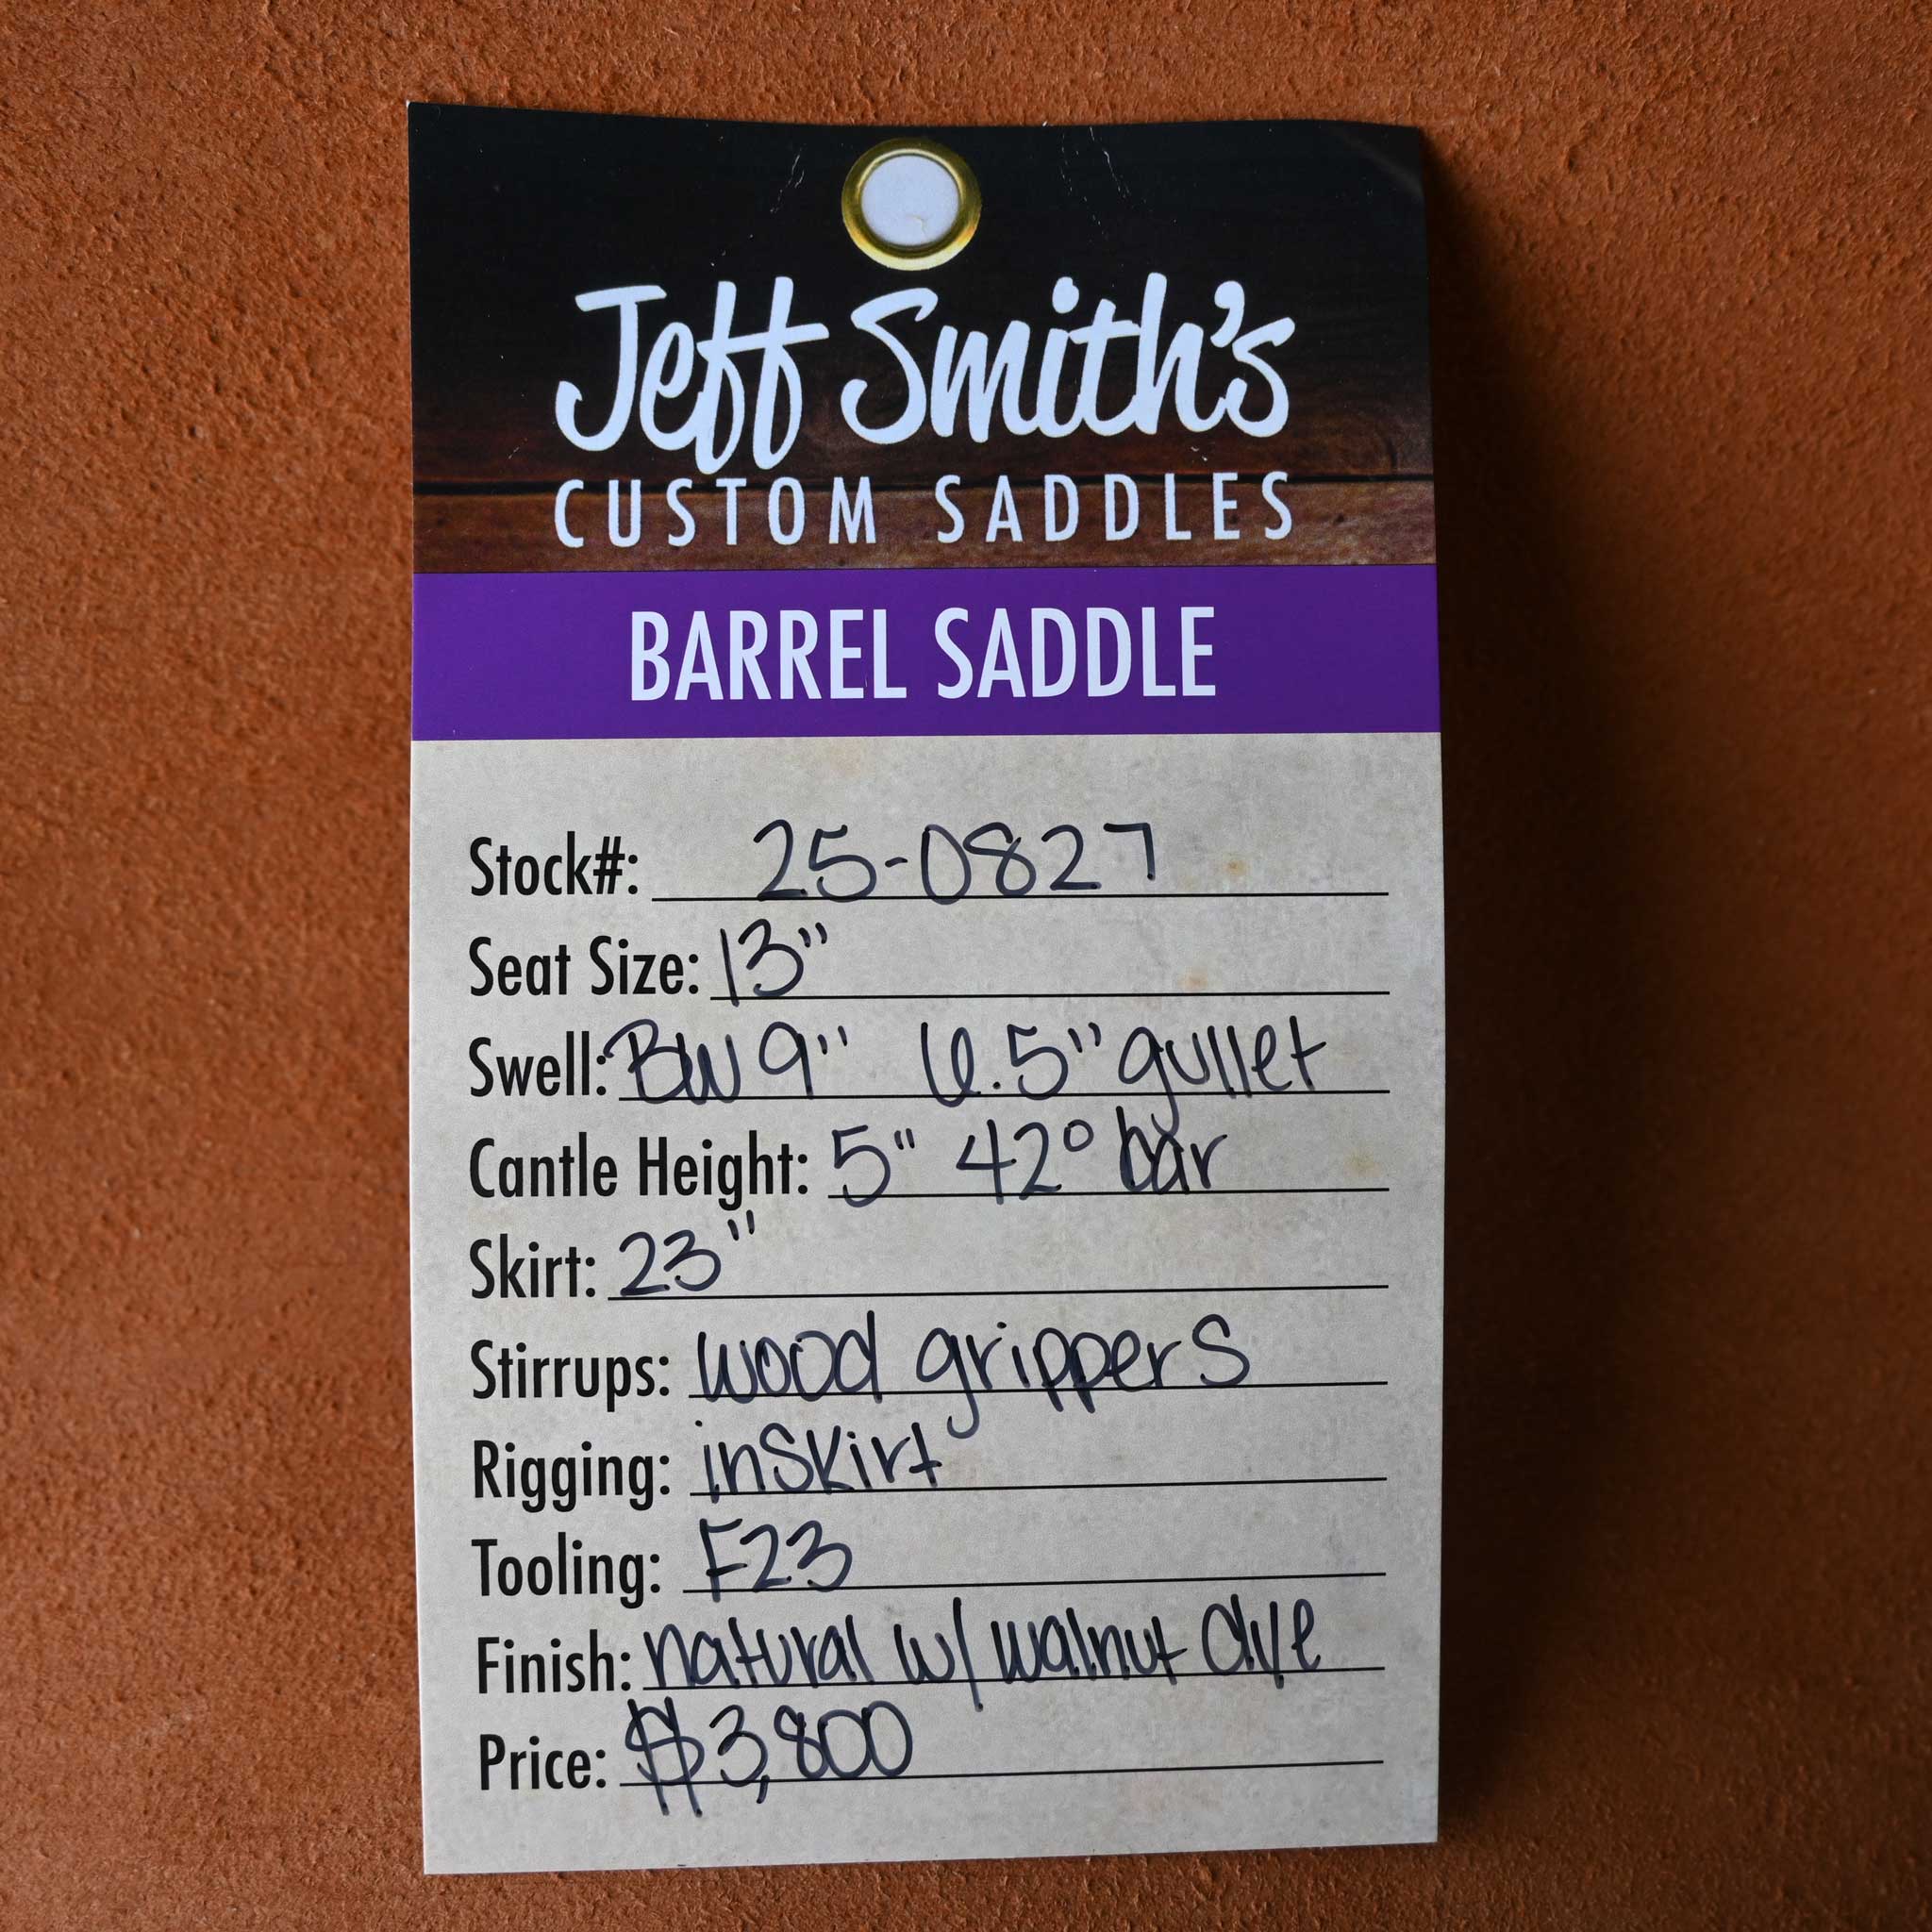 Jeff Smith's
CUSTOM SADDLES
BARREL SADDLE
Stock#: 25-0827
Seat Size: 13"
Swell: BW 9" 6.5" gullet
Cantle Height: 5" 42° bar
Skirt: 23"
Stirrups: wood grippers
Rigging: inskirt
Tooling: F23
Finish: natural w/ walnut dye
Price: $3,800